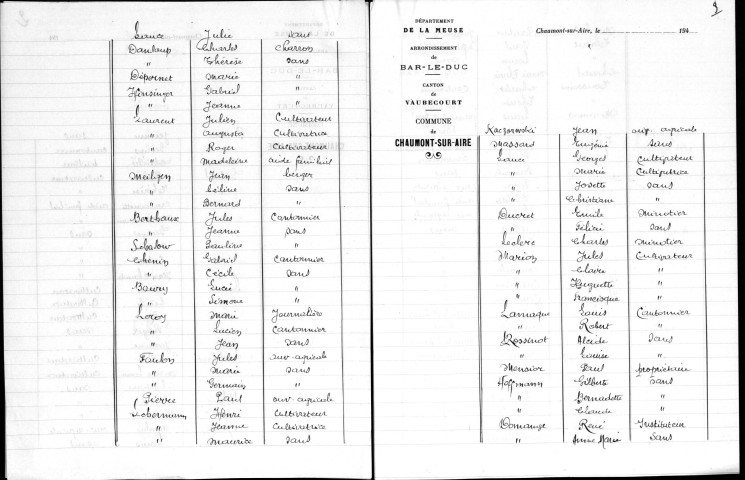 Lance Julie sans
Danloup Charles Charron
" Thérèse sans
Déponet Marie "
Hensinger Gabriel "
" Jeanne "
Laurent Julien Cultivateur
" Augusta Cultivatrice
" Roger Cultivateur
" Madeleine aide familial
Meiligen Jean berger
" Céline sans
" Bernard "
Berthaux Jules Cantonnier
" Jeanne sans
Pauline "
Chénin Gabriel Cantonnier
" Cécile sans
Baury Lucie "
" Simone "
Leroy Marie Journalière
" Lucien Cantonnier
" Jean sans
Faulon Jules ouv. agricole
" Marie sans
" Germain "
Pierre Paul ouv agricole
Lobermann Henri Cultivateur
" Jeanne Cultivatrice
" Maurice sans
2
DÉPARTEMENT
DE LA MEUSE
ARRONDISSEMENT
de
BAR-LE-DUC
CANTON
de
VAUBECOURT
COMMUNE
de
CHAUMONT-SUR-AIRE
Chaumont-sur-Aire, le 194
Kaczorowski Jean ouv. agricole
Massard Eugénie sans
Lance Georges Cultivateur
" Marie Cultivatrice
" Josette sans
" Christiane "
Ducret Emile minotier
" Félicie sans
Leclerc Charles minotier
Marion Jules Cultivateur
" Claire "
" Huguette "
" Francisque "
Lamaque Louis Cantonnier
" Robert "
Rossinot Alcide sans
" Louise "
Menoier Paul propriétaire
Hoffmann Gilberte sans
" Bernadette "
" Claude "
Domange René Instituteur
" Anne Marie sans